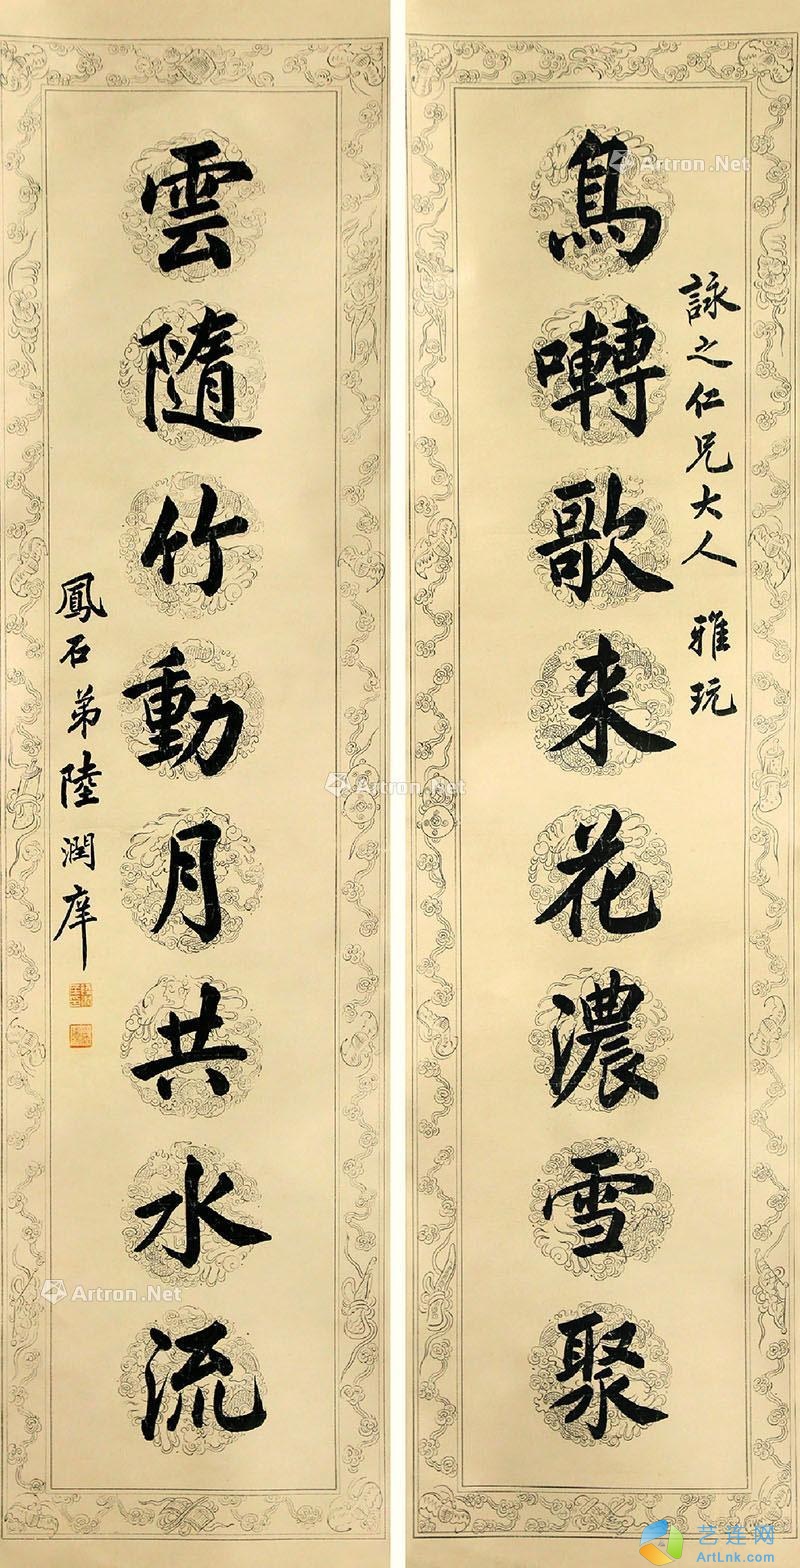 詠之仁兄大人 雅玩
鳥囀歌来花濃雪聚
雲隨竹動月共水流
鳳石弟陸潤庠
Artron.Net
Artron.Net
Artron.Net
艺连网
ArtLnk.com